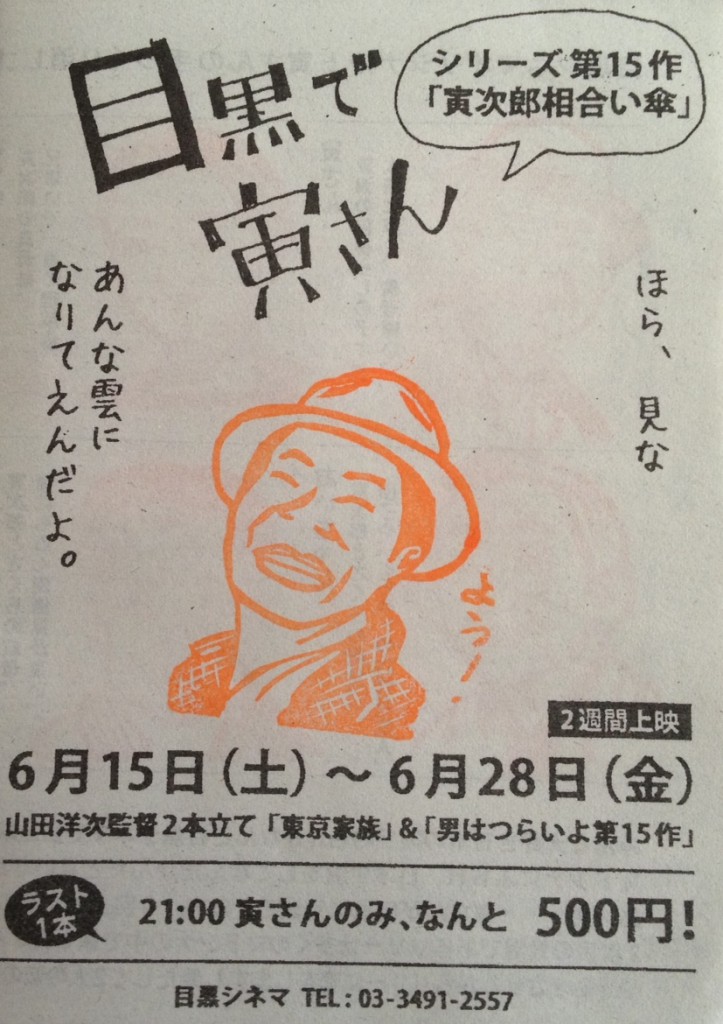 目黒で
寅さん
シリーズ 第15作
「寅次郎相合い傘」
ほら、見な
あんな雲に
なりてえんだよ。
よう!
2週間上映
6月15日(土)〜6月28日(金)
山田洋次監督2本立て「東京家族」&「男はつらいよ第15作」
ラスト
1本
21:00 寅さんのみ、なんと 500円!
目黒シネマ TEL:03-3491-2557